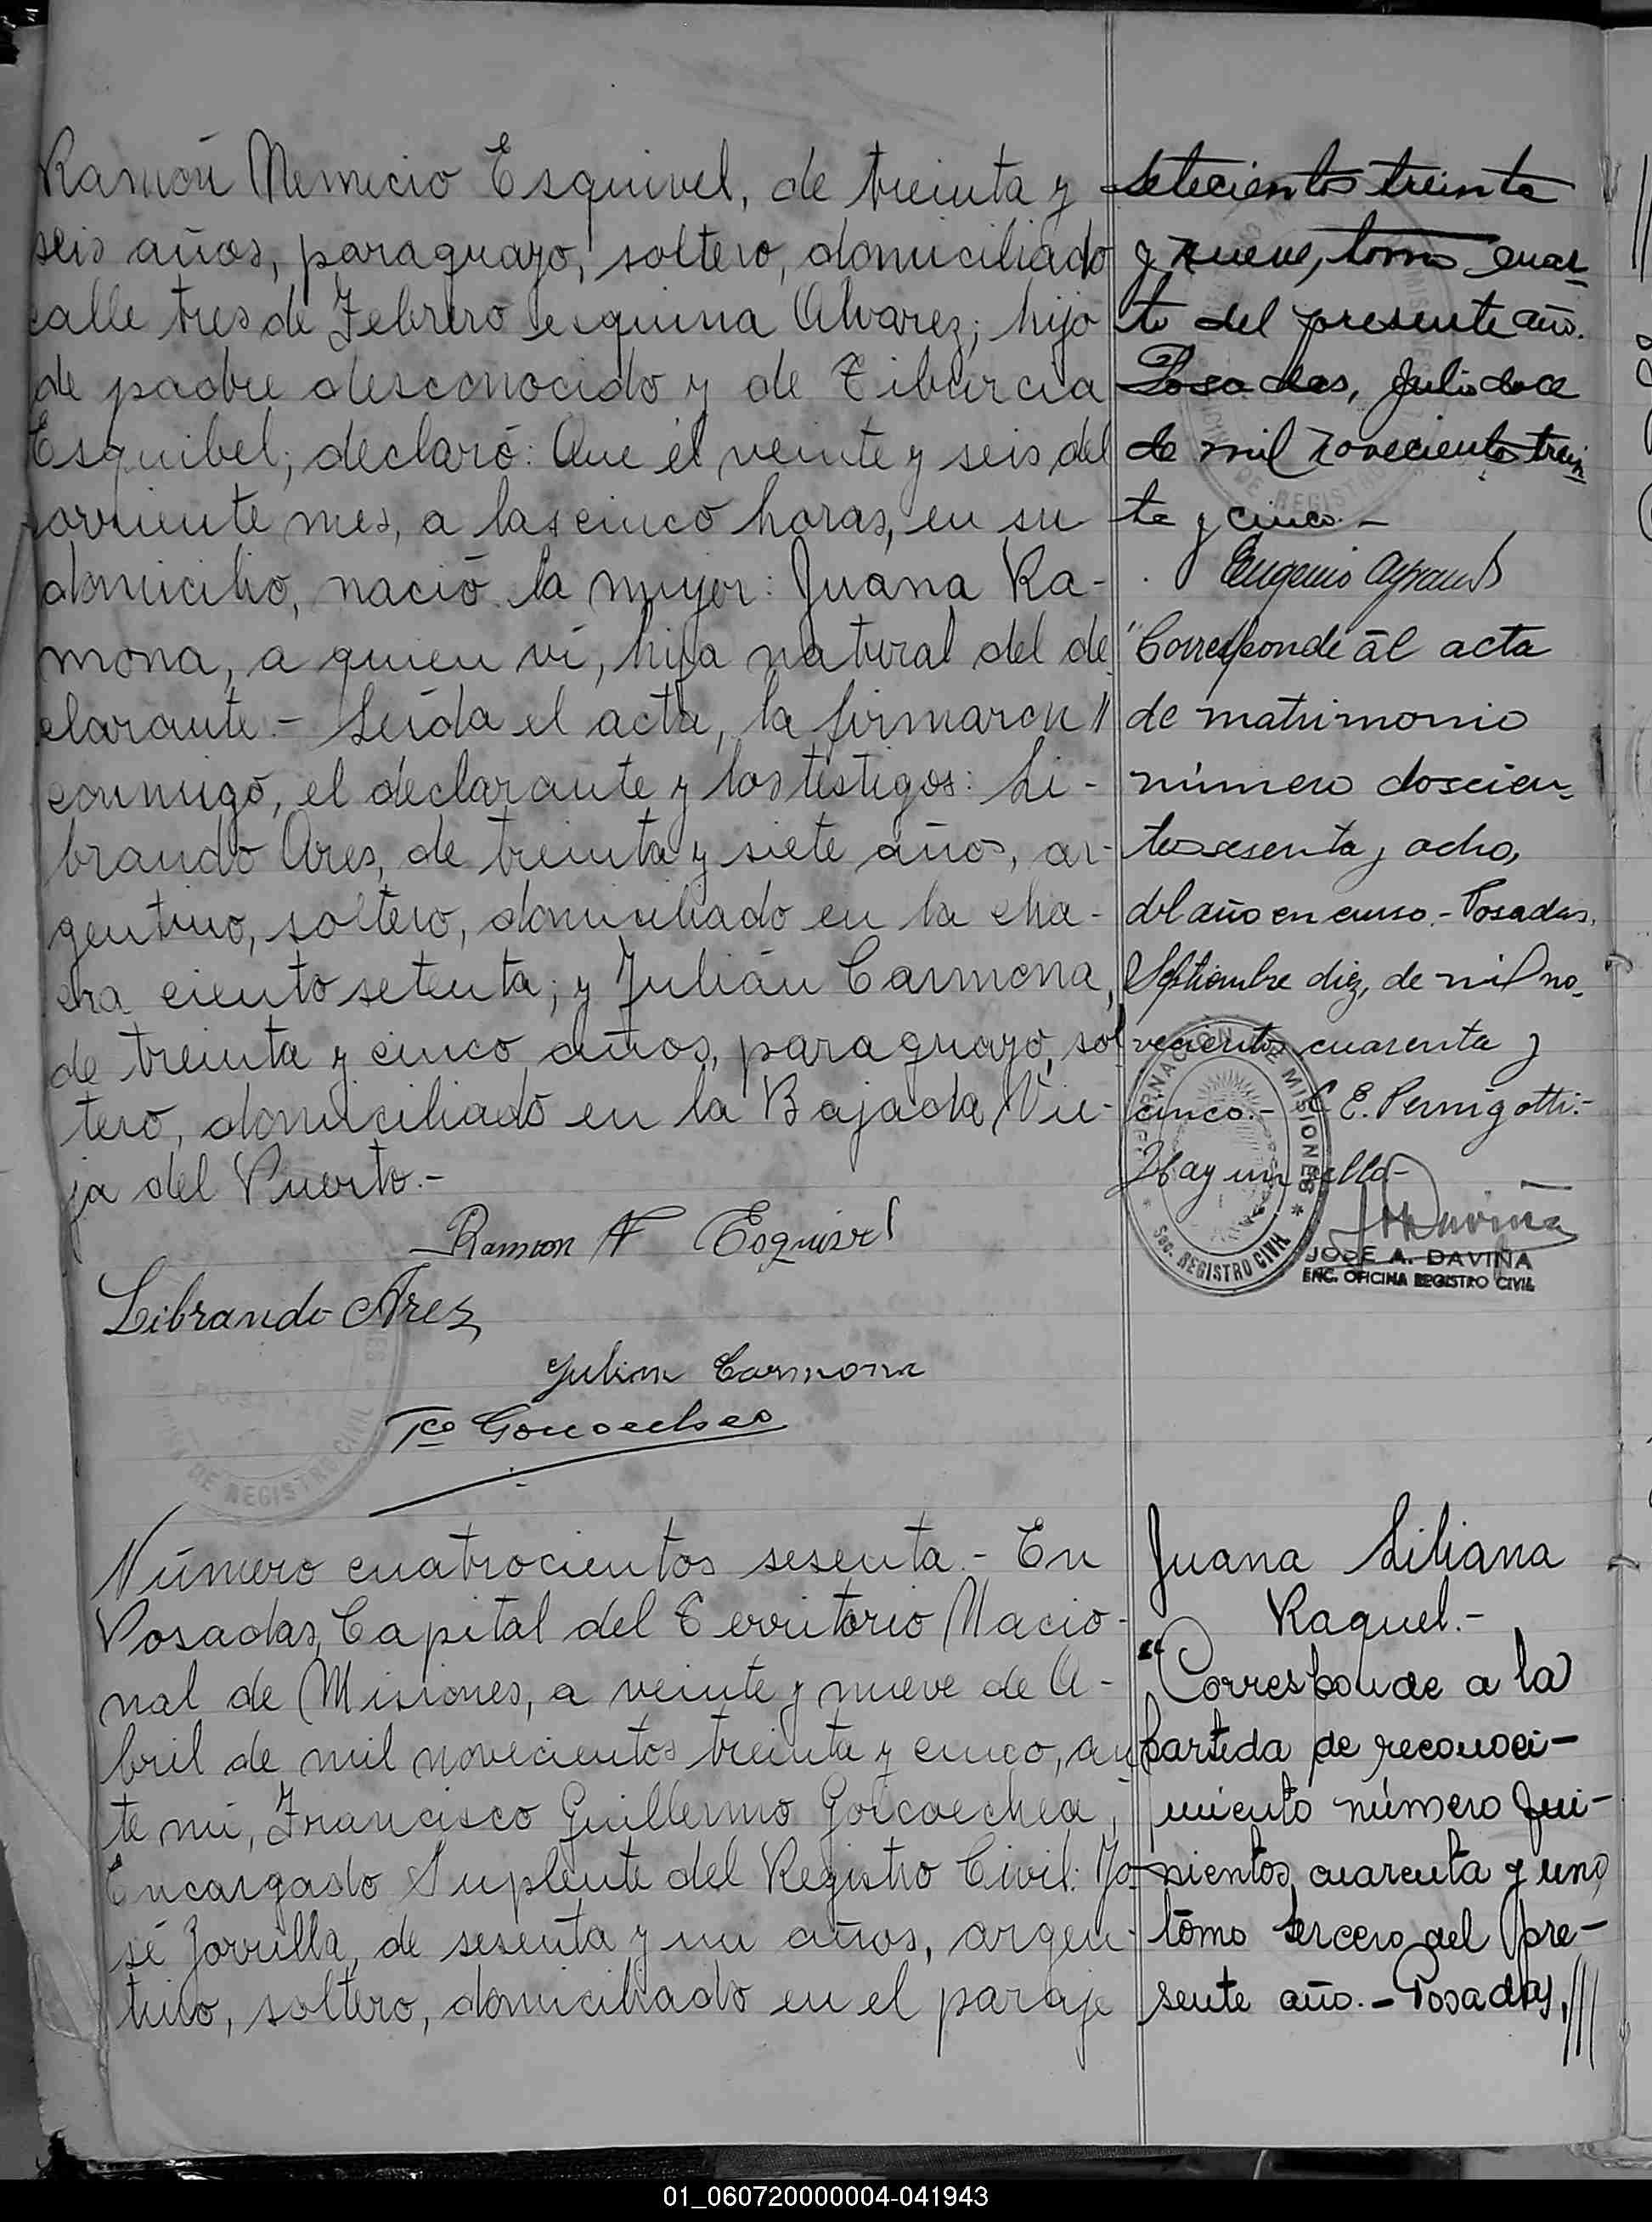 Ramón Nemecio Esquivel, de treinta y
seis años, paraguayo, soltero, domiciliado
calle tres de Febrero esquina Alvarez; hijo
de padre desconocido y de Tiburcia
Esquibel; declaró: Que el veinte y seis del
corriente mes, a las cinco horas, en su
domicilio, nació la mujer: Juana Ra-
mona, a quien ví, hija natural del de-
clarante.- Leída el acta, la firmaron //
conmigo, el declarante y los testigos: Li-
brando Ares, de treinta y siete años, ar-
gentino, soltero, domiciliado en la cha-
cra ciento setenta; y Julián Carmona,
de treinta y cinco años, paraguayo, sol
tero, domiciliado en la Bajada Vie-
ja del Puerto.-
Ramon N Esquivel
Librando Ares
Julian Carmona
Fco Goicoechea
DE REGISTRO CIVIL
Número cuatrocientos sesenta.- En
Posadas, Capital del Territorio Nacio-
nal de Misiones, a veinte y nueve de A-
bril de mil novecientos treinta y cinco, an-
te mí, Francisco Guillermo Goicoechea,
Encargado Suplente del Registro Civil: Jo-
sé Zorrilla, de sesenta y un años, argen-
tino, soltero, domiciliado en el paraje
setecientos treinta
y nueve, tomo cuar-
to del presente año.
Posadas, Julio doce
de mil novecientos trein-
ta y cinco.-
Eugenio
"Corresponde al acta
de matrimonio
número doscien-
tos sesenta y ocho,
del año en curso.- Posadas,
Septiembre diez, de mil no-
vecientos cuarenta y
cinco.- C. E. Pernigotti.-
Hay un sello-
GOBERNACIÓN DE MISIONES
* SEC. REGISTRO CIVIL *
JOSE A. DAVIÑA
ENC. OFICINA REGISTRO CIVIL
Juana Liliana
Raquel.-
"Corresponde a la
partida de reconoci-
miento número qui-
nientos cuarenta y uno
tomo tercero del pre-
sente año.- Posadas, ///
01_060720000004-041943